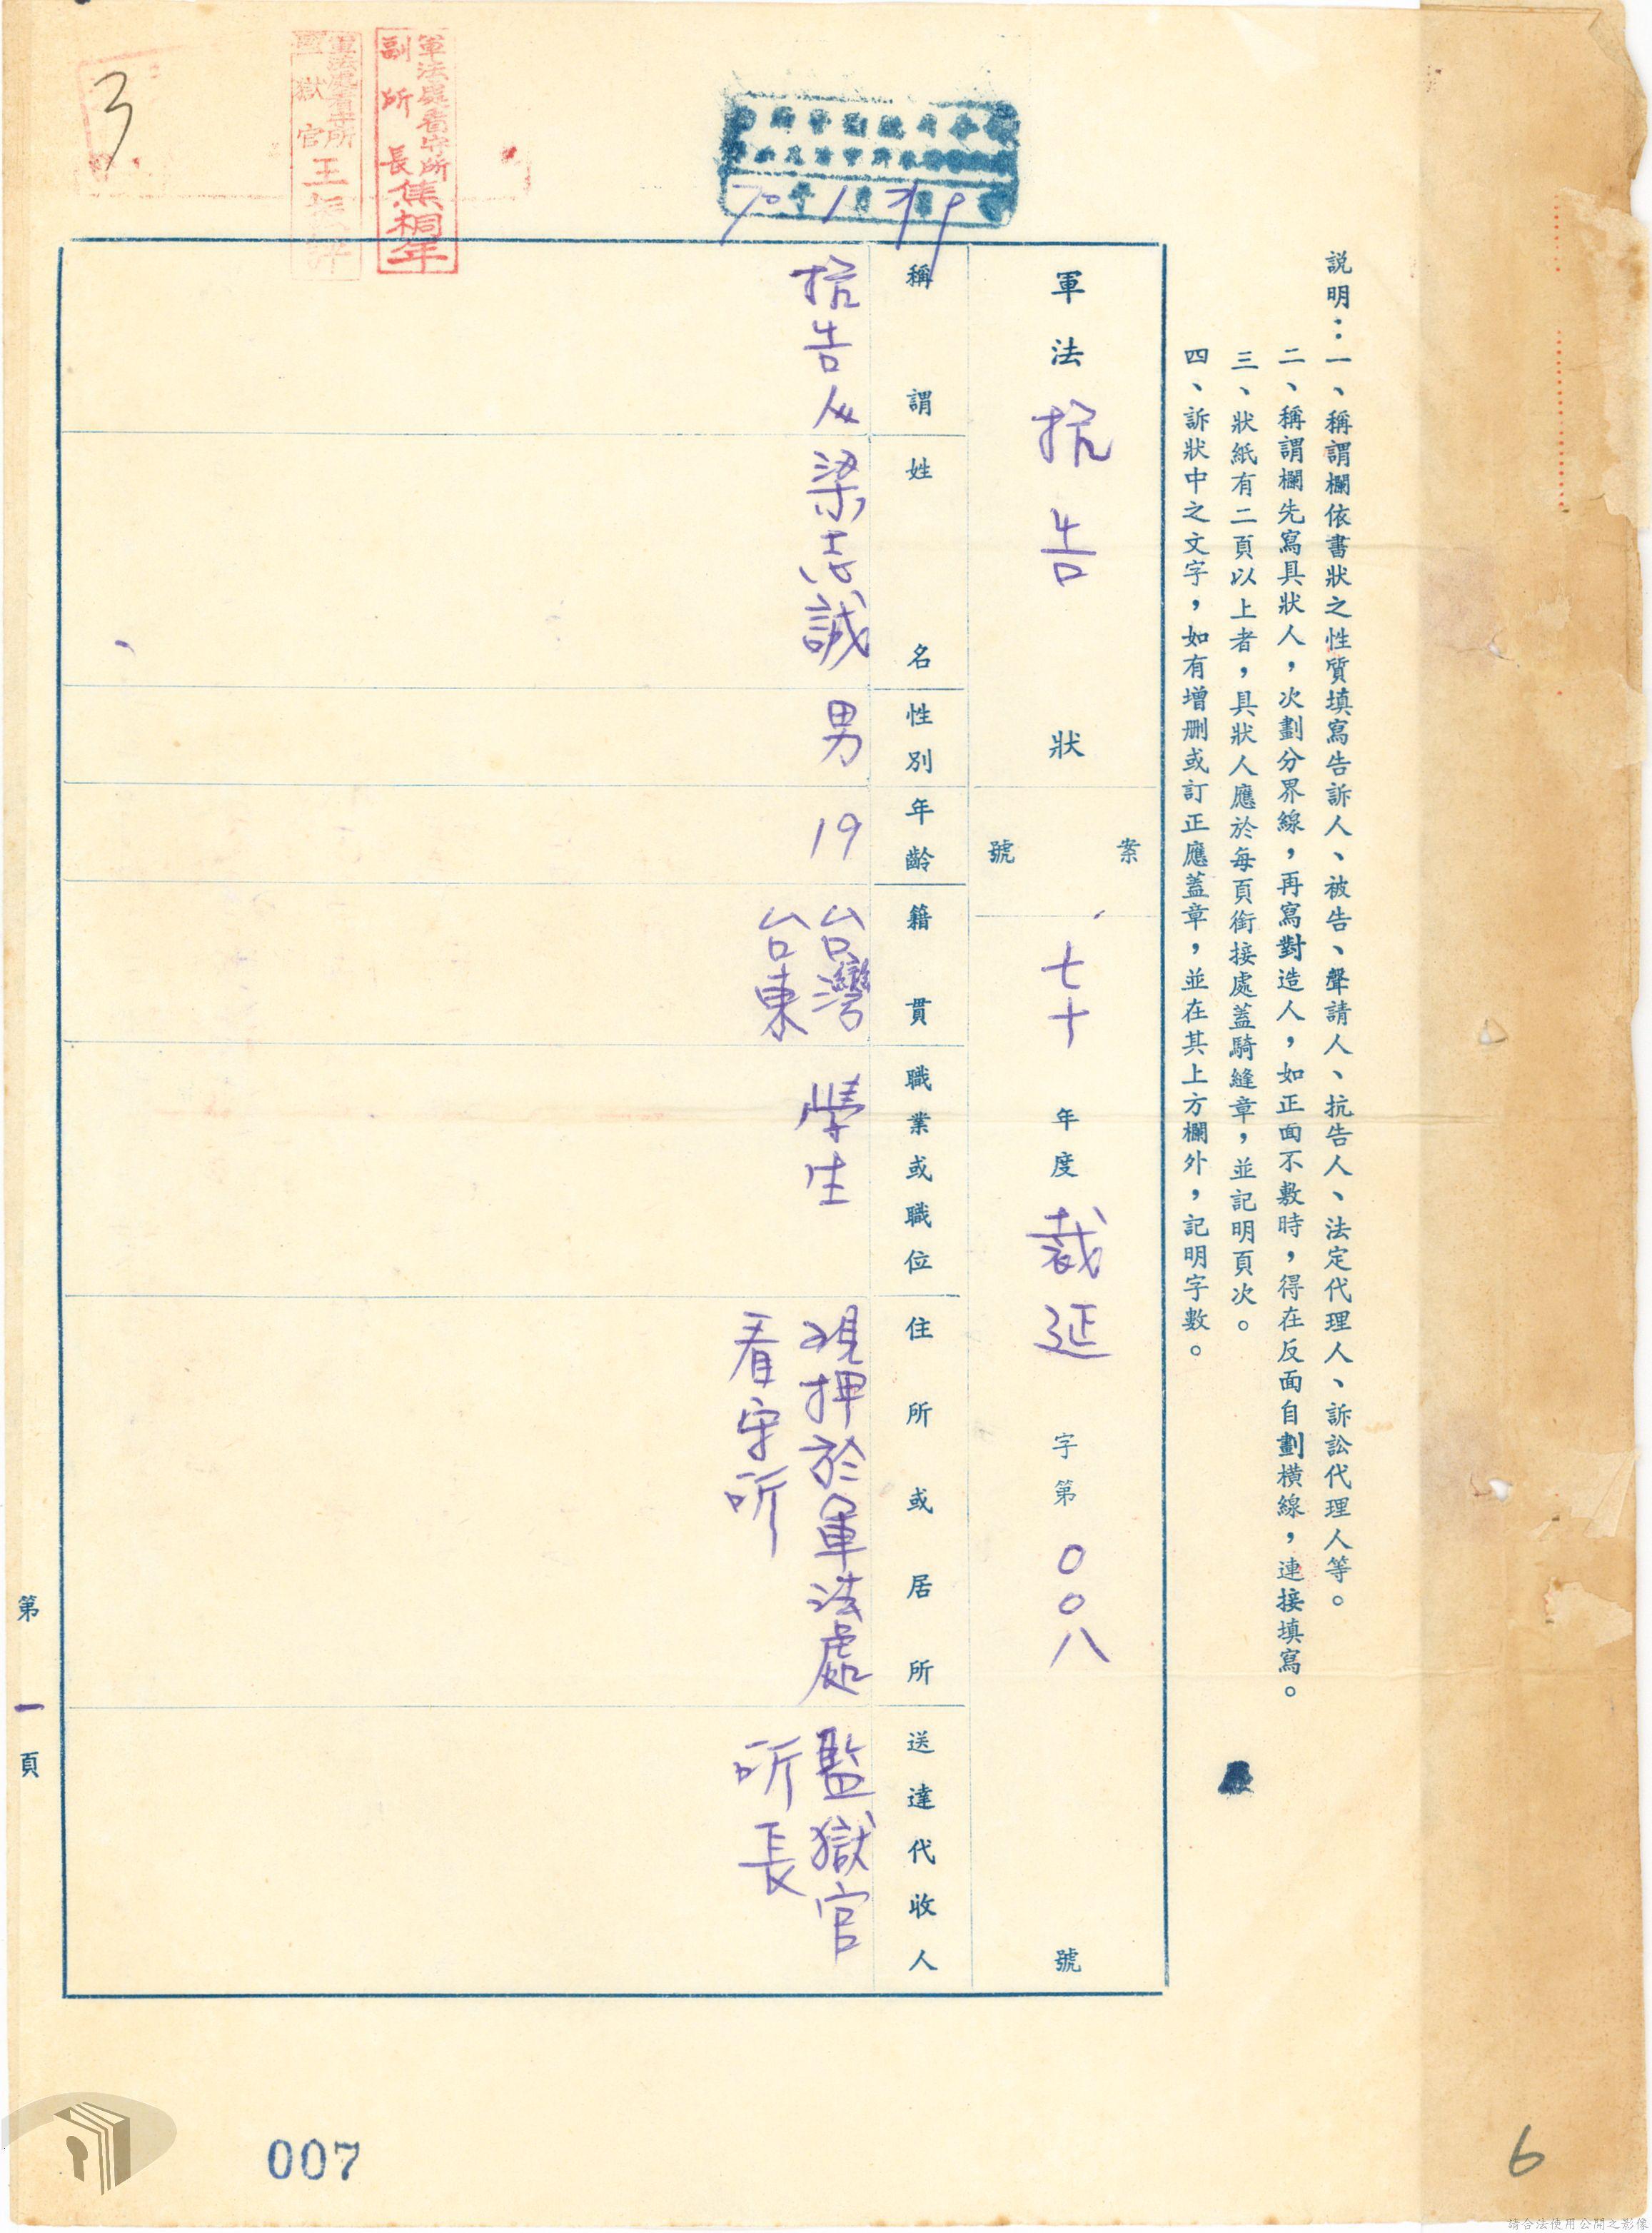 說明：一、稱謂欄依書狀之性質填寫告訴人、被告、聲請人、抗告人、法定代理人、訴訟代理人等。
二、稱謂欄先寫具狀人，次劃分界線，再寫對造人，如正面不敷時，得在反面自劃橫線，連接填寫。
三、狀紙有二頁以上者，具狀人應於每頁銜接處蓋騎縫章，並記明頁次。
四、訴狀中之文字，如有增刪或訂正應蓋章，並在其上方欄外，記明字數。
軍法抗告狀
案號
七十年度裁延字第００八號
稱謂
姓名
性別
年齡
籍貫
職業或職位
住所或居所
送達代收人
抗告人
梁志誠
男
19
台灣
台東
學生
現押於軍法處
看守所
監獄官
所長
70年1月
軍法處看守所
副所長焦桐年
軍法處看守所
監獄官王
3
第一頁
007
6
請合法使用公開之影像